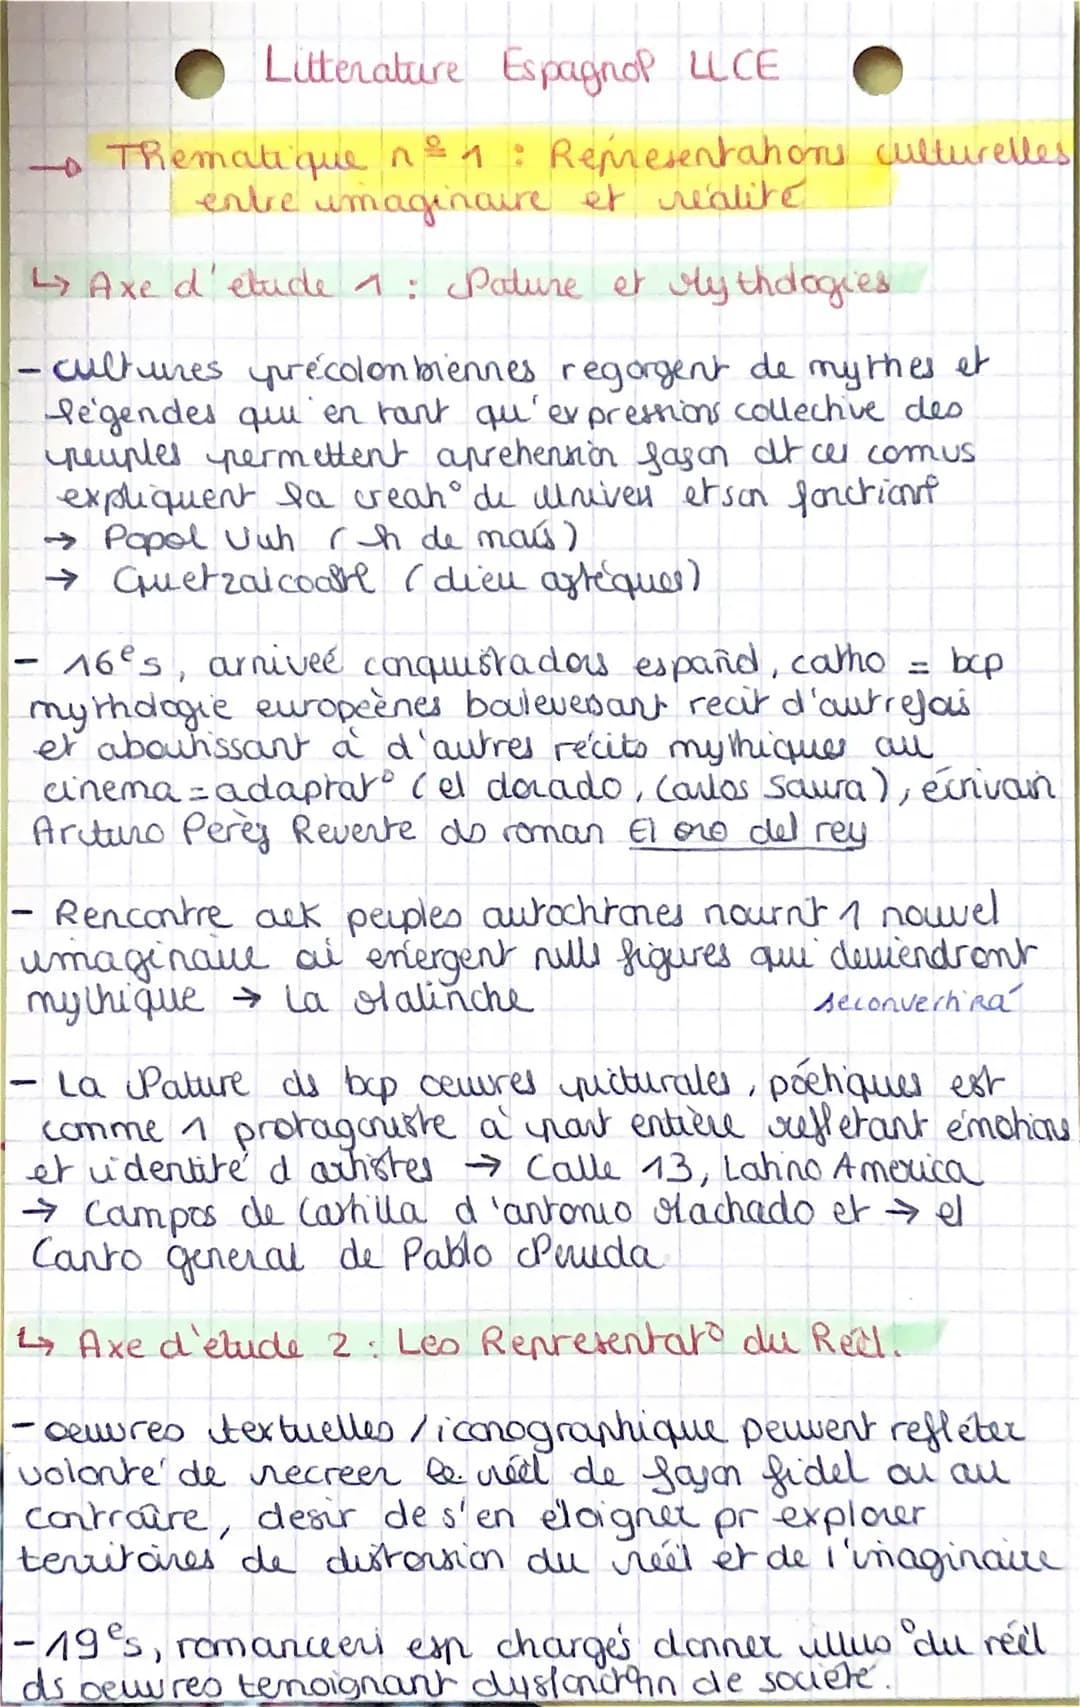 Litterature Espagnol LLCE
→ Thematique nº 1 : Representations culturelles
entre imaginaire et réalité
↳ Axe d'etude 1 : Nature et Mythologies
- cultures précolombiennes regorgent de mythes et
légendes qui en tant qu'expressions collective des
peuples permettent aprehension façon dt ces
expliquent la creat° de univers et son fonctionnt
→ Popol Vuh (h de maïs)
→ Quetzalcoatl (dieu aztèques)
- 16e s, arriveé conquistadors español, catho = bcp
mythologie européènes bouleversant recit d'autrefois
et aboutissant à d'autres récits mythiques au
cinema = adaptat° (el dorado, Carlos Saura), écrivain
Arturo Perèz Reverte ds roman El oro del rey
- Rencontre aek peuples autochtones nourrit 1 nouvel
imaginaire où émergent nvlls figures qui deviendront
mythique → La Malinche
se convertira
- La Nature ds bcp oeuvres picturales, poétiques est
comme 1 protagoniste à part entière reflétant émotions
et identité d artistes → Calle 13, Latino America
→ Campos de Castilla d'antonio Machado et → el
Canto general de Pablo Neruda
↳ Axe d'etude 2 : Les Representat° du Reél.
- oeuvres textuelles / iconographique peuvent refléter
volonté de recreer le réél de façon fidel ou au
contraîre, desir de s'en éloigner pr explorer
territoires de distorsion du réél et de l'imaginaire
- 19e s, romanciers esp chargés donner illus° du réél
ds oeuvres temoignant de societé.